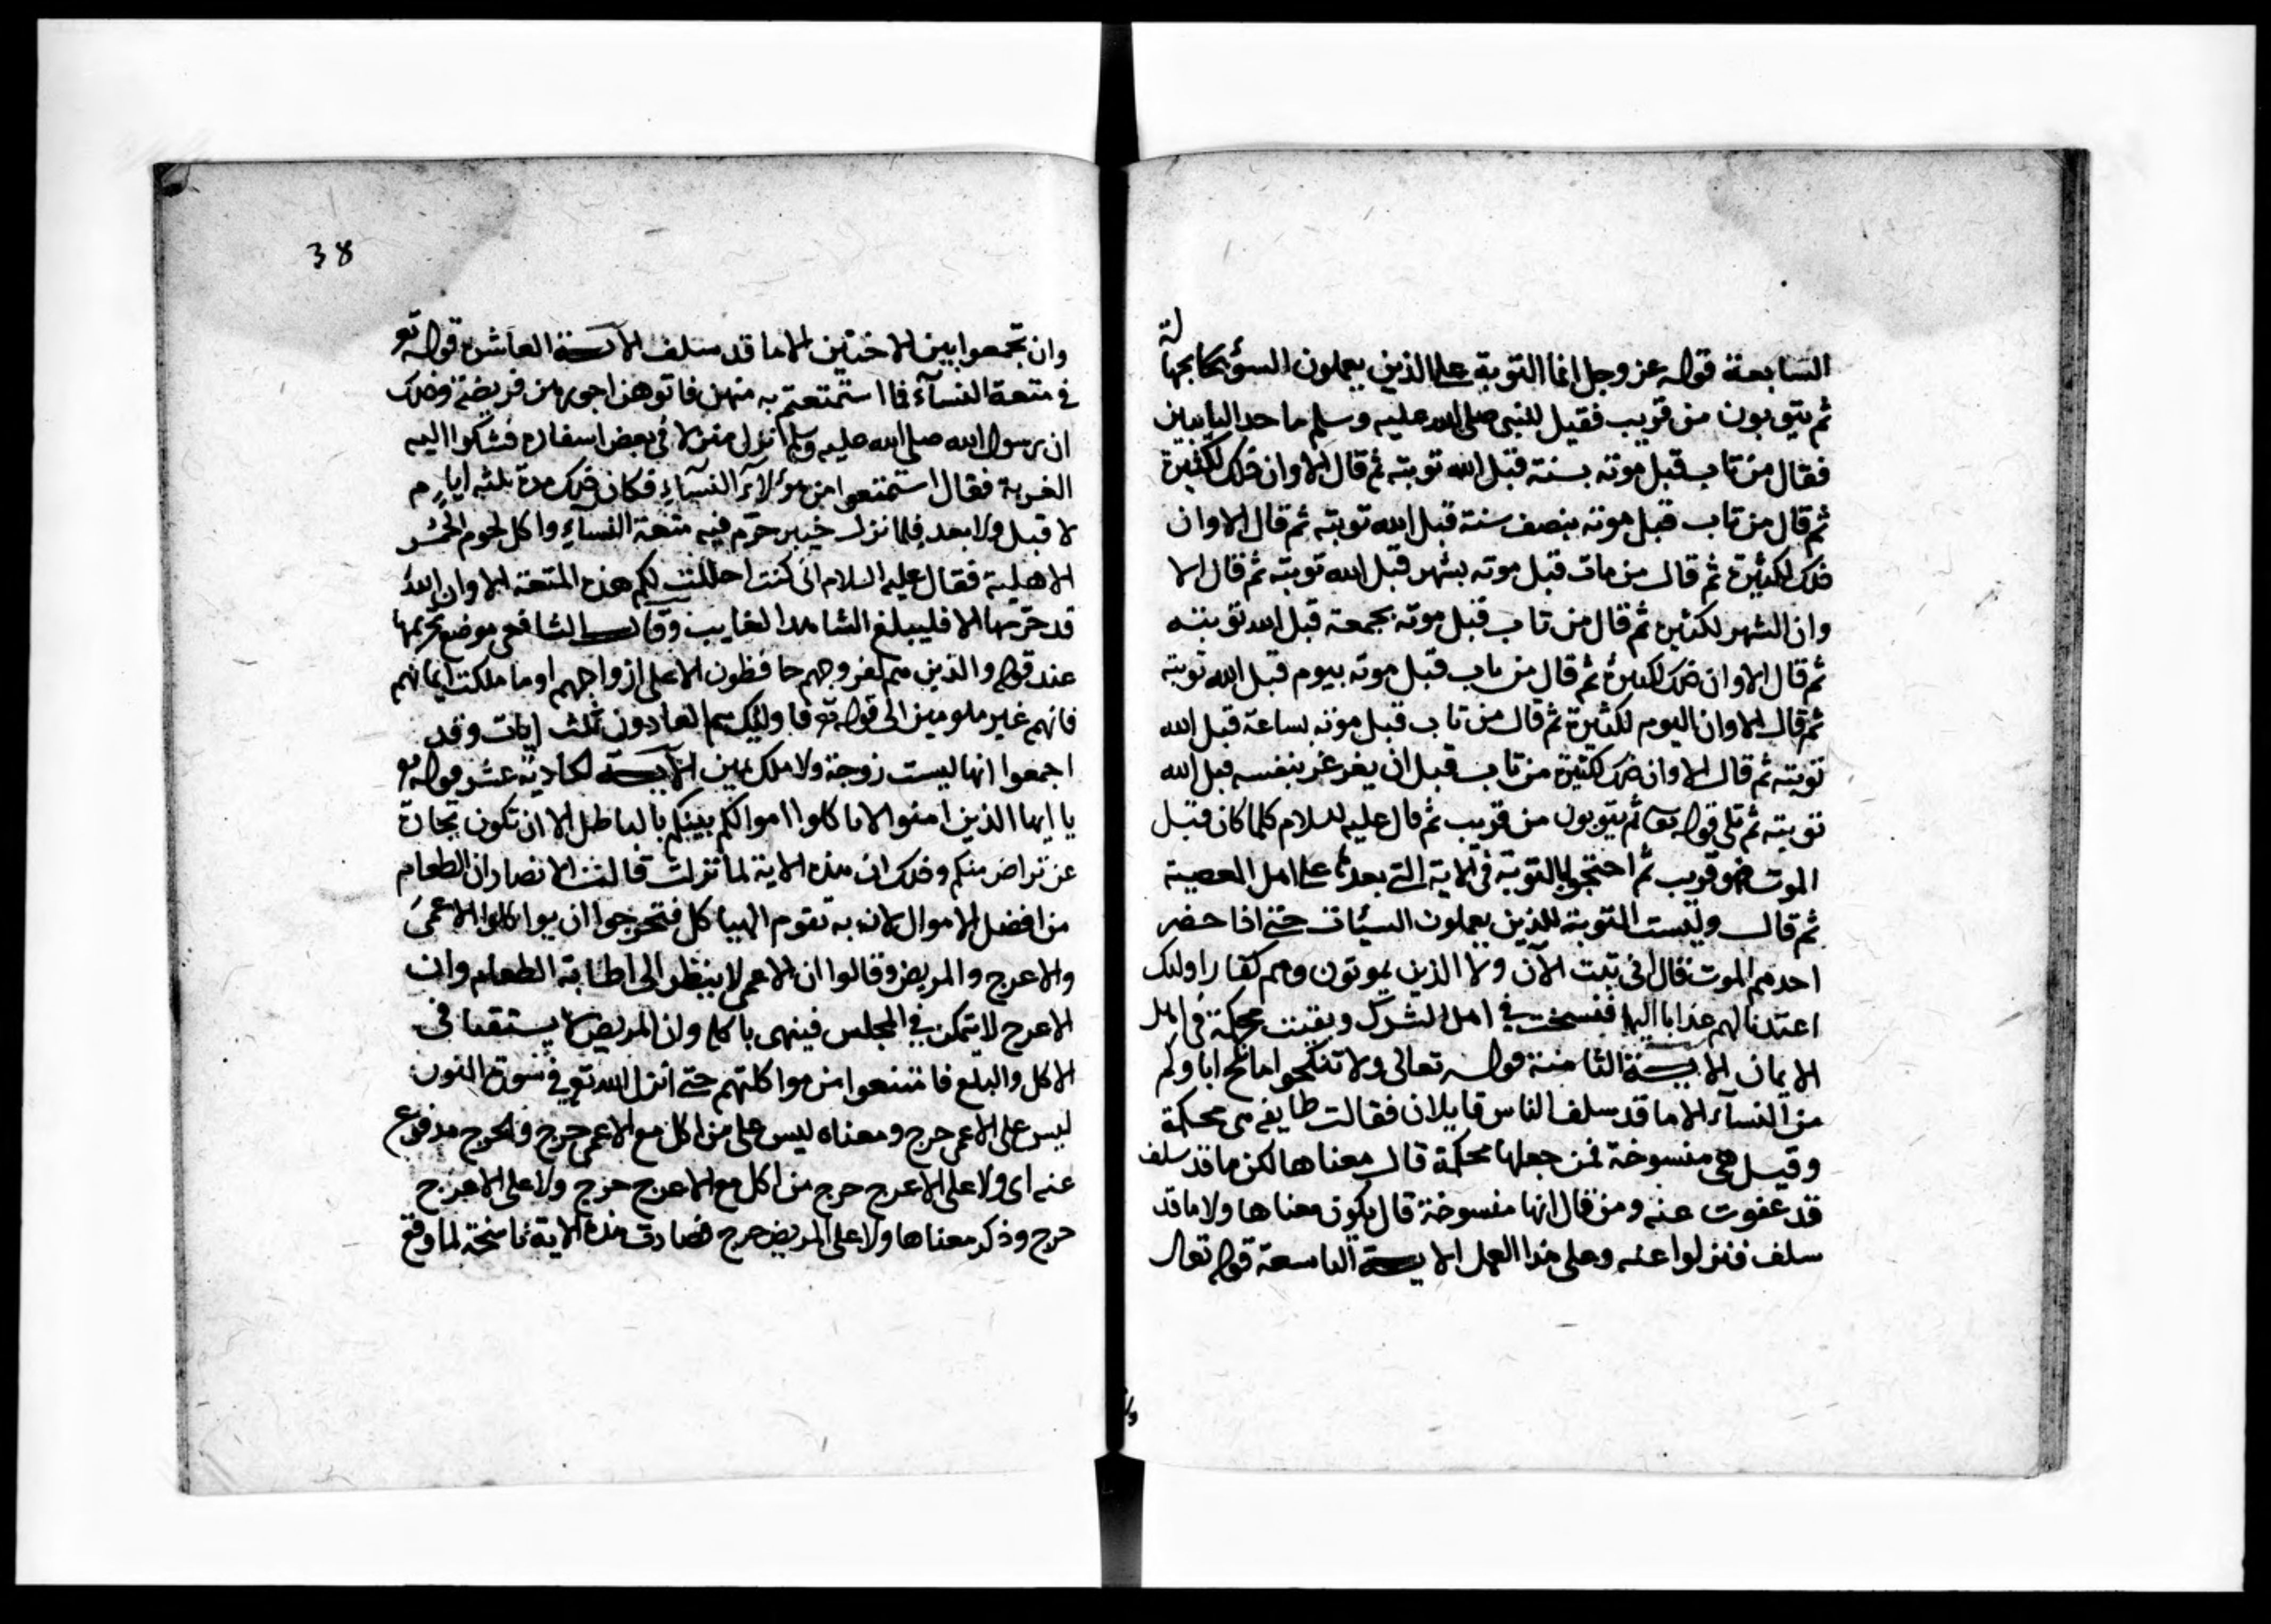 السابعة قوله عز وجل انما التوبة على الذين يعملون السؤ بجهالة
ثم يتوبون من قريب فقيل للنبي صلى الله عليه وسلم ما حد التايبين
فقال من تاب قبل موته بسنة قبل الله توبته ثم قال الا وان ذلك لكثيرة
ثم قال من تاب قبل موته بنصف سنة قبل الله توبته ثم قال الا وان
ذلك لكثيرة ثم قال من مات قبل موته بشهر قبل الله توبته ثم قال الا
وان الشهر لكثير ثم قال من تاب قبل موته بجمعة قبل الله توبته
ثم قال الا وان ذلك لكثيرة ثم قال من تاب قبل موته بيوم قبل الله توبته
ثم قال الا وان اليوم لكثيرة ثم قال من تاب قبل موته بساعة قبل الله
توبته ثم قال الا وان ذلك لكثيرة من تاب قبل ان يغرغر بنفسه قبل الله
توبته ثم تلى قوله تعا ثم يتوبون من قريب ثم قال عليه السلام كلما كان قبل
الموت فهو قريب ثم احتجوا بالتوبة في الاية التي بعدها على اهل المعصية
ثم قال وليست التوبة للذين يعملون السيئات حتى اذا حضر
احدهم الموت قال اني تبت الآن ولا الذين يموتون وهم كفار اولئك
اعتدنا لهم عذابا اليما فنسخت في اهل الشرك وبقيت محكمة في اهل
الايمان الاية الثامنة قوله تعالى ولا تنكحوا ما نكح اباوكم
من النسآء الا ما قد سلف الناس قايلان فقالت طايفة هى محكمة
وقيل هى منسوخة فمن جعلها محكمة قال معناها لكن ما قد سلف
قد عفوت عنه ومن قال انها منسوخة قال يكون معناها ولا ما قد
سلف فنزلوا عنه وعلى هذا العمل الاية التاسعة قوله تعالى
38
وان تجمعوا بين الاختين الا ما قد سلف الآية العاشرة قوله تع
في متعة النسآء فما استمتعتم به منهن فاتوهن اجورهن فريضة وذلك
ان رسول الله صلى الله عليه وسلم نزل منزلا في بعض اسفاره فشكوا اليه
الغربة فقال استمتعوا من هؤلآء النسآء فكان ذلك مدة ثلثه ايام
لا قبل ولا بعد فلما نزل خيبر حرّم فيه متعة النسآء واكل لحوم الحمر
الاهلية فقال عليه السلام انى كنت احللت لكم هذه المتعة الا وان الله
قد حرّمها الا فليبلغ الشاهد الغايب وقال الشافعي موضع تحريمها
عند قوله والذين هم لفروجهم حافظون الا على ازواجهم او ما ملكت ايمانهم
فانهم غير ملومين الى قوله تع فاولئك هم العادون ثلث ايات وقد
اجمعوا انها ليست زوجة ولا ملك يمين الآية الحادية عشر قوله تع
يا ايها الذين امنوا لا تاكلوا اموالكم بينكم بالباطل الا ان تكون تجارة
عن تراض منكم وذلك ان هذه الاية لما نزلت قالت الانصار ان الطعام
من افضل الاموال لانه به تقوم الهياكل فتحرجوا ان يواكلوا الاعمى
والاعرج والمريض وقالوا ان الاعمى لا ينظر الى اطايبة الطعام وان
الاعرج لا يتمكن في المجلس فيتهى باكله وان المريض لا يستقنا فى
الاكل والبلع فامتنعوا من مواكلتهم حتى انزل الله تع في سورة النون
ليس على الاعمى حرج ومعناه ليس على من اكل مع الاعمى حرج والحرج مدفوع
عنه اى ولا على الاعرج حرج من اكل مع الاعرج حرج ولا على الاعرج
حرج وذكر معناها ولا على المريض حرج فصارت هذه الاية ناسخة لما وقع